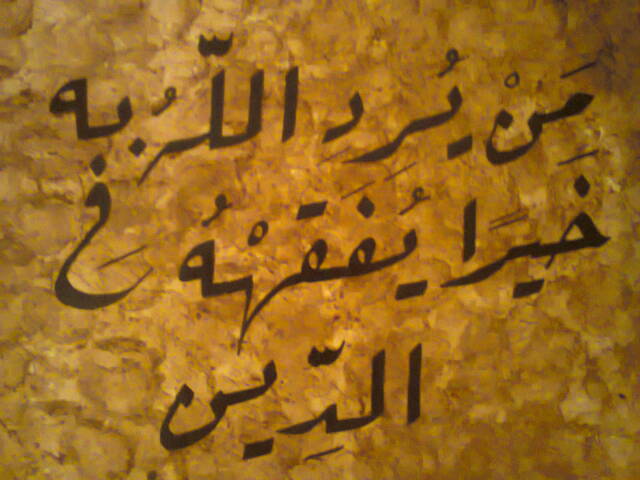 مَنْ يُرِدِ اللّهُ بِه
خَيرًا يُفَقِهْهُ في
الدِّين